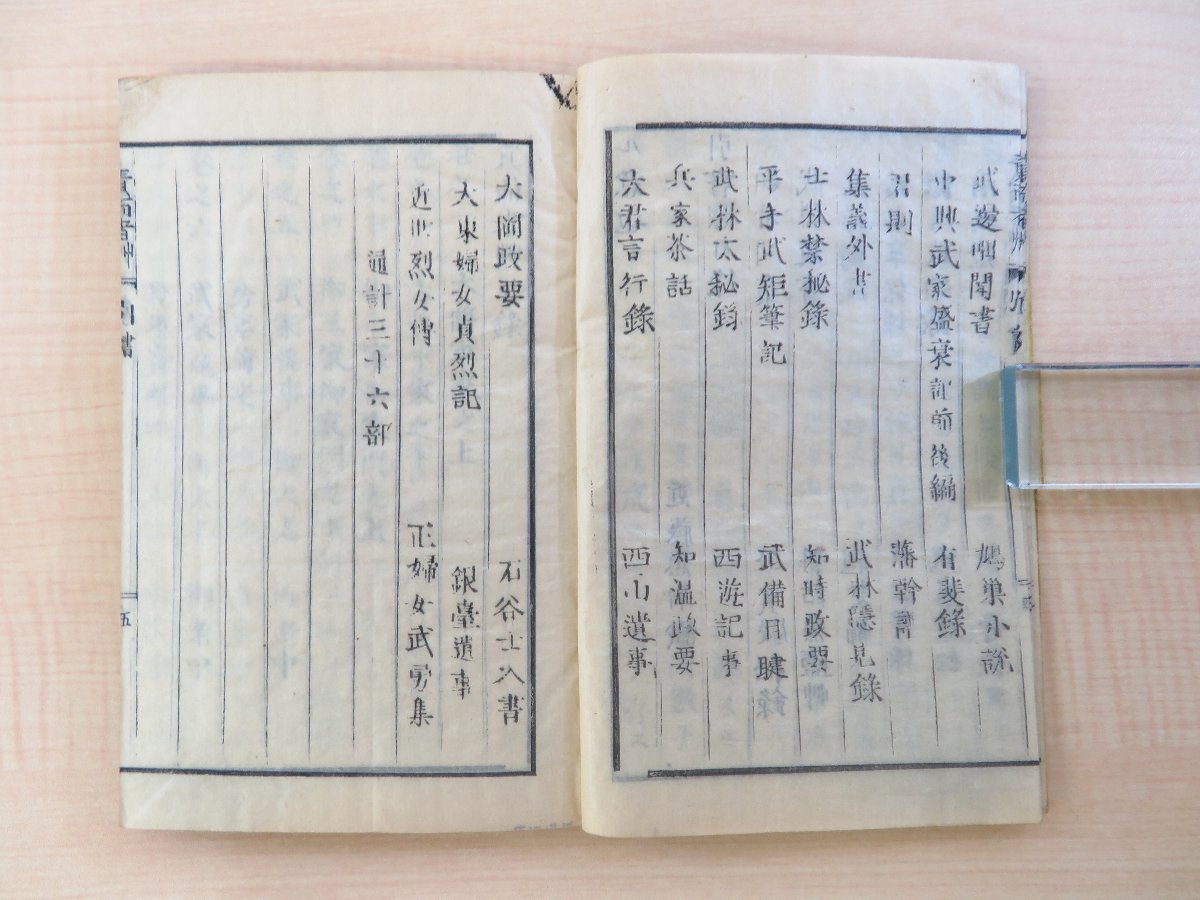 武邊咄聞書 鳩巢小説
中興武家盛衰記前後編 有斐錄
君則 藩幹譜
集義外書 武林隱見錄
士林禁秘錄 知時政要
平手武矩筆記 武備目睫錄
武林太秘錄 西遊記事
兵家茶話 知温政要
大君言行錄 西山遺事
大岡政要 石谷士入書
大東婦女貞烈記 銀臺遺事
近世烈女傳 正婦女武勇集
通計三十六部
引書
五